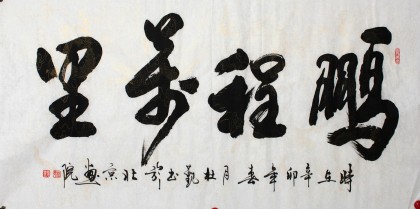 鹏程万里
时在辛卯年春月杜勤书于北京画院